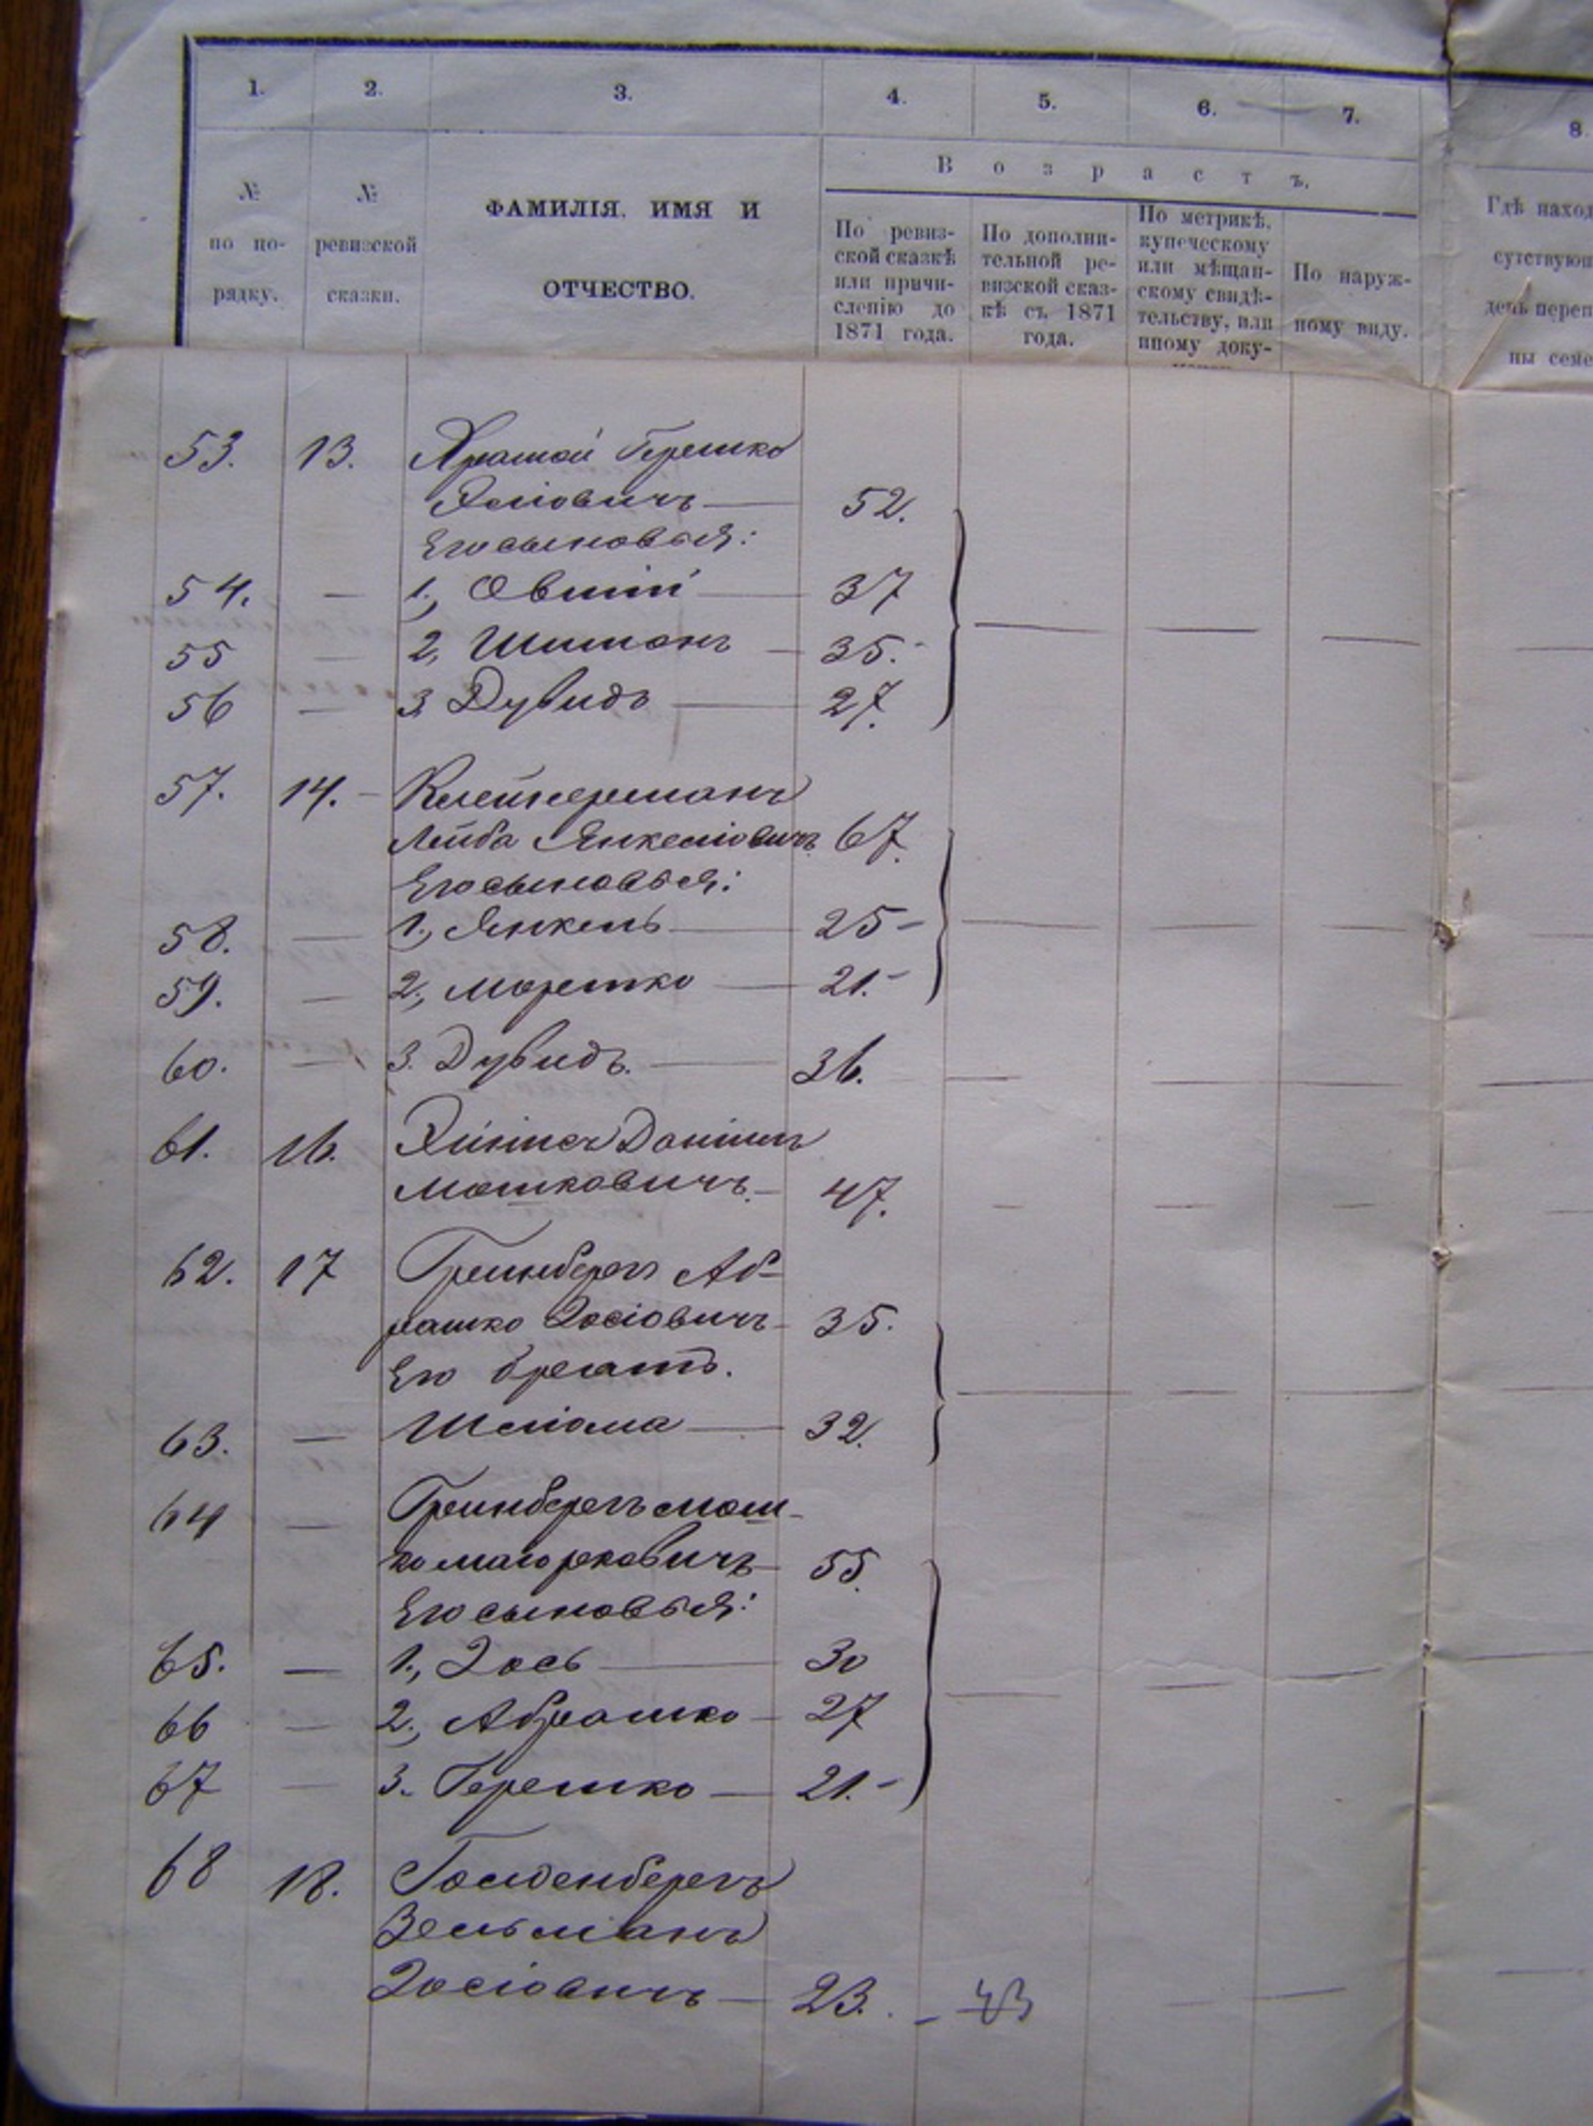 1. 2. 3. 4. 5. 6. 7. 8.
В о з р а с т ъ.
№ по по-рядку.
№ ревизской сказки.
ФАМИЛІЯ, ИМЯ И
ОТЧЕСТВО.
По ревиз-
ской сказкѣ
или причи-
сленію до
1871 года.
По дополни-
тельной ре-
визской сказ-
кѣ съ 1871
года.
По метрикѣ,
купеческому
или мѣщан-
скому свидѣ-
тельству, или
иному доку-
По наруж-
ному виду.
Гдѣ наход
сутствующ
день переп
ны семе
53. 13. Хромой Гершко
Эліовичъ — 52.
Его сыновья:
54. — 1, Овшій — 37
55 — 2, Шимонъ — 35.
56 — 3 Дувидъ — 27.
57. 14. Клейнерманъ
Лейба Янкеліовичъ 67.
Его сыновья:
58. — 1, Янкель — 25
59. — 2, Мошко — 21.
60. — 3. Дувидъ. — 36.
61. 16. Даніилъ
Мошковичъ. — 47.
62. 17 Гринбергъ Аб-
рашко Іосіовичъ 35.
Его братъ.
63. — Шліома — 32.
64 — Гринбергъ Мош-
ко Маіорковичъ 55.
Его сыновья:
65. — 1, Іось — 30
66 — 2, Абрашко — 27
67 — 3. Гершко — 21.
68 18. Голденбергъ
Зельманъ
Іосіовичъ — 23. — 43